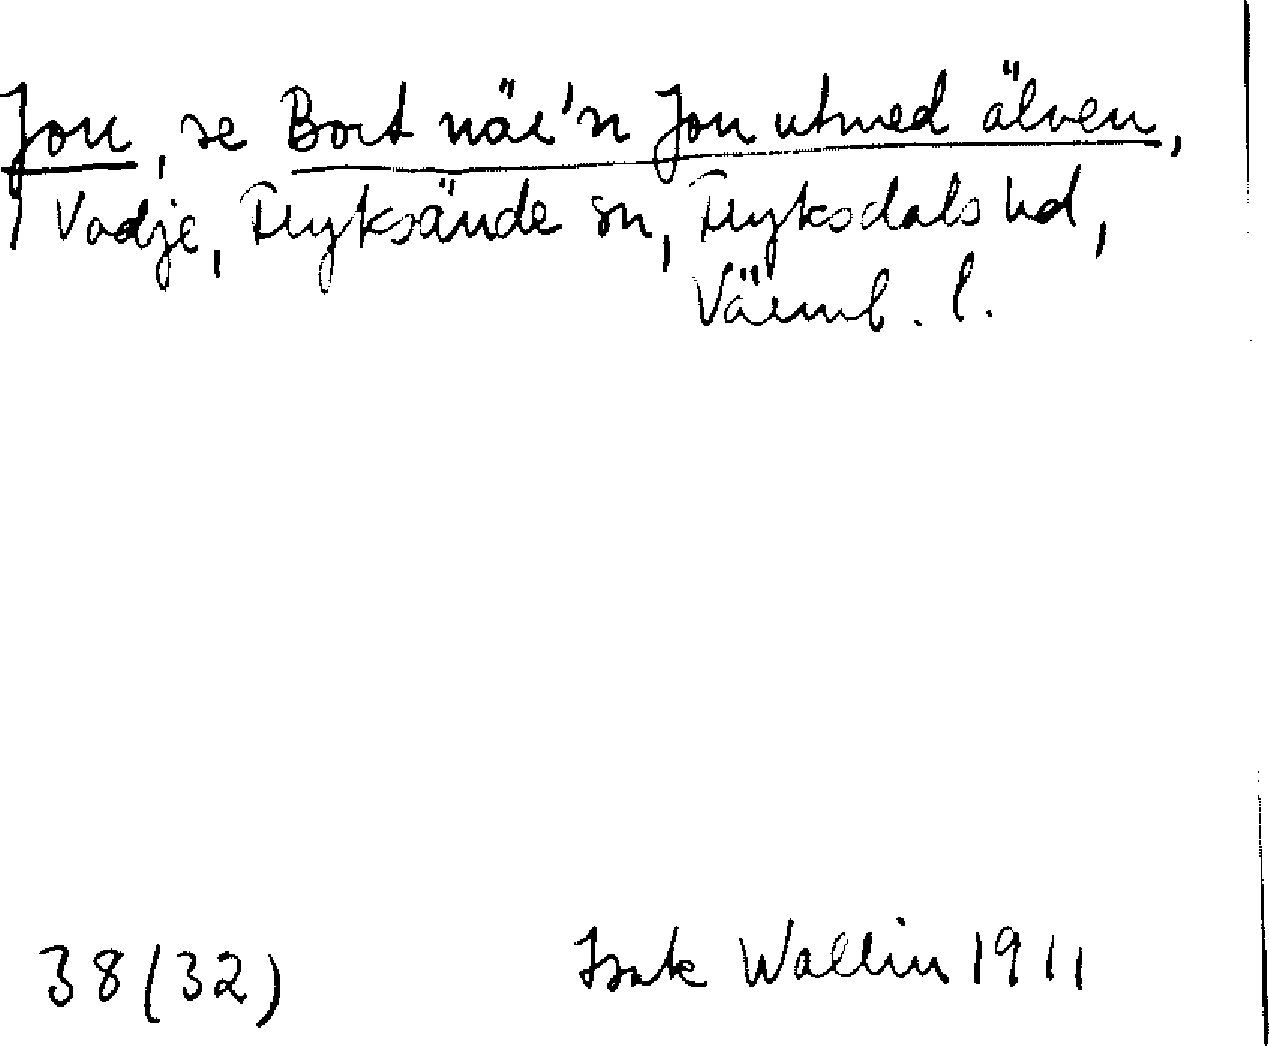 Jon, se Bort när'n Jon utmed älven,
Vadje, Fryksände sn, Fryksdals hd,
Värml. l.
38 (32) Isak Wallin 1911